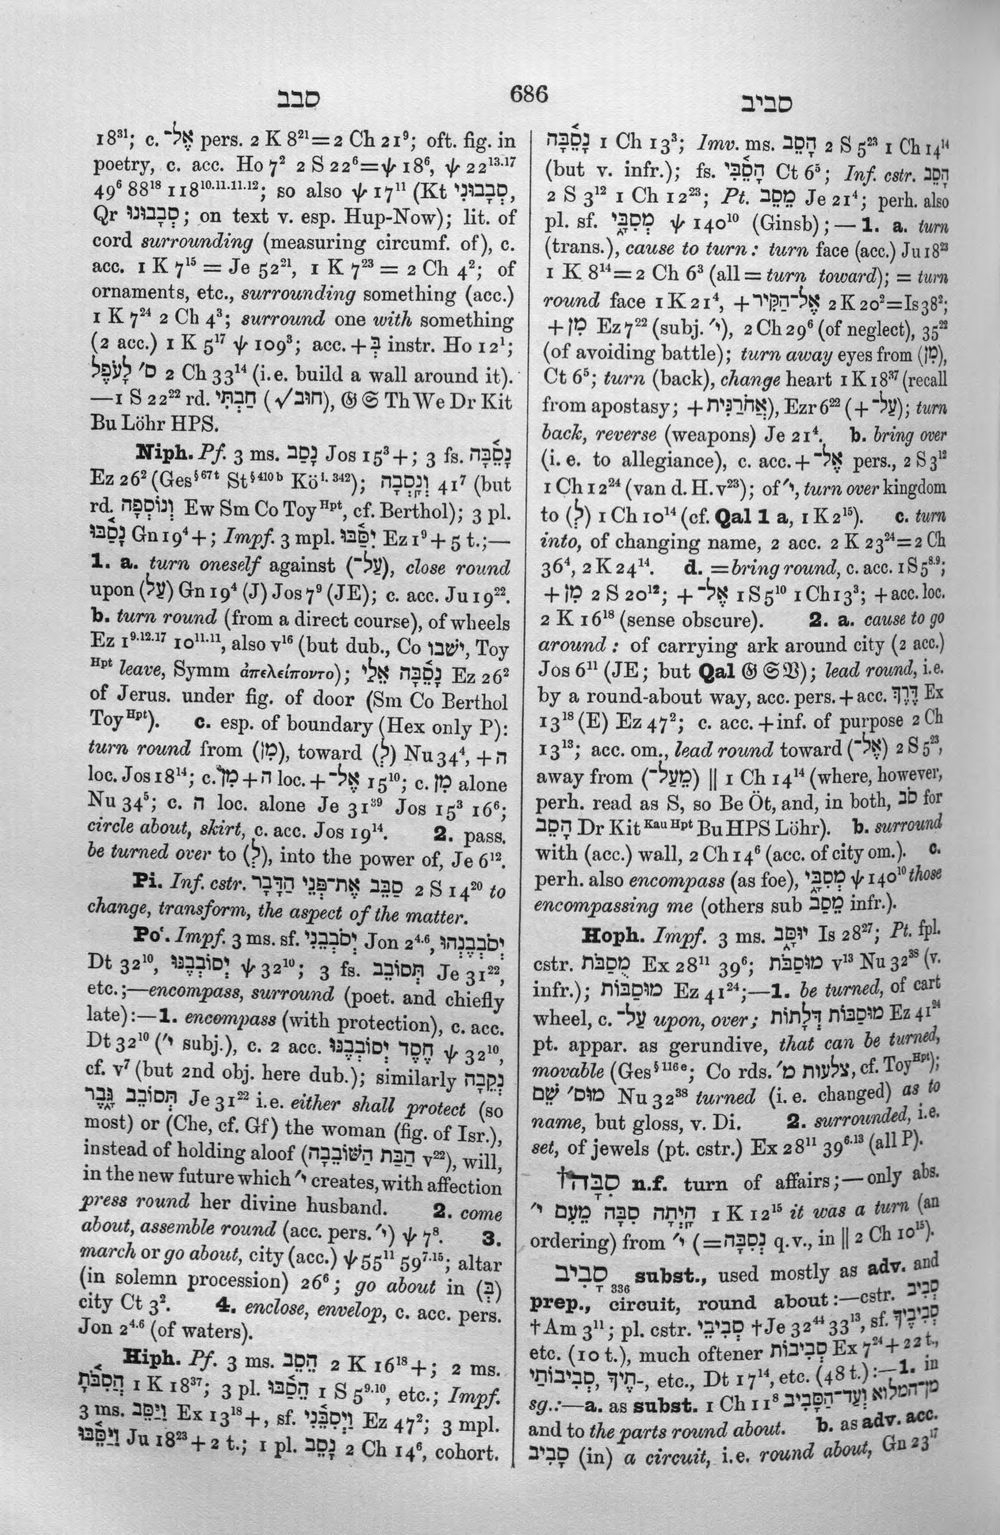 סבב
686
סביב
18³¹; c. אֶל־ pers. 2 K 8²¹=2 Ch 21⁹; oft. fig. in
poetry, c. acc. Ho 7² 2 S 22⁶=ψ 18⁶, ψ 22¹³·¹⁷
49⁶ 88¹⁸ 118¹⁰·¹¹·¹¹·¹²; so also ψ 17¹¹ (Kt סְבָבוּנִי,
Qr סְבָבוּנוּ; on text v. esp. Hup-Now); lit. of
cord surrounding (measuring circumf. of), c.
acc. 1 K 7¹⁵ = Je 52²¹, 1 K 7²³ = 2 Ch 4²; of
ornaments, etc., surrounding something (acc.)
1 K 7²⁴ 2 Ch 4³; surround one with something
(2 acc.) 1 K 5¹⁷ ψ 109³; acc. + בְּ instr. Ho 12¹;
ס׳ לָעֹפֶל 2 Ch 33¹⁴ (i.e. build a wall around it).
—1 S 22²² rd. חַבְתִּי (√חוב), 𝔊 𝔖 Th We Dr Kit
Bu Löhr HPS.
Niph. Pf. 3 ms. נָסַב Jos 15³ +; 3 fs. נָסֵ֫בָּה
Ez 26² (Ges§⁶⁷ᵗ St§⁴¹⁰ᵇ Köⁱ·³⁴²); וְנָסְבָה 41⁷ (but
rd. וְנוֹסְפָה Ew Sm Co Toy Hpt, cf. Berthol); 3 pl.
נָסַ֫בּוּ Gn 19⁴ +; Impf. 3 mpl. יִסַּ֫בּוּ Ez 1⁹ + 5 t.;—
1. a. turn oneself against (עַל־), close round
upon (עַל) Gn 19⁴ (J) Jos 7⁹ (JE); c. acc. Ju 19²².
b. turn round (from a direct course), of wheels
Ez 1⁹·¹²·¹⁷ 10¹¹·¹¹, also v¹⁶ (but dub., Co ישבו, Toy
Hpt leave, Symm ἀπελείποντο); נָסֵ֫בָּה אֵלַי Ez 26²
of Jerus. under fig. of door (Sm Co Berthol
Toy Hpt). c. esp. of boundary (Hex only P):
turn round from (מִן), toward (לְ) Nu 34⁴, + ה
loc. Jos 18¹⁴; c. מִן + ה loc. + אֶל־ 15¹⁰; c. מִן alone
Nu 34⁵; c. ה loc. alone Je 31³⁹ Jos 15³ 16⁶;
circle about, skirt, c. acc. Jos 19¹⁴. 2. pass.
be turned over to (לְ), into the power of, Je 6¹².
Pi. Inf. cstr. סַבֵּב אֶת־פְּנֵי הַדָּבָר 2 S 14²⁰ to
change, transform, the aspect of the matter.
Poʿ. Impf. 3 ms. sf. יְסֹבְבֵנִי Jon 2⁴·⁶, יְסֹבְבֶנְהוּ
Dt 32¹⁰, יְסוֹבְבֶנּוּ ψ 32¹⁰; 3 fs. תְּסוֹבֵב Je 31²²,
etc.;—encompass, surround (poet. and chiefly
late):—1. encompass (with protection), c. acc.
Dt 32¹⁰ (׳י subj.), c. 2 acc. חֶסֶד יְסוֹבְבֶנּוּ ψ 32¹⁰,
cf. v⁷ (but 2nd obj. here dub.); similarly נְקֵבָה
תְּסוֹבֵב גָּבֶר Je 31²² i.e. either shall protect (so
most) or (Che, cf. Gf) the woman (fig. of Isr.),
instead of holding aloof (הַבַּת הַשּׁוֹבֵבָה v²²), will,
in the new future which ׳י creates, with affection
press round her divine husband. 2. come
about, assemble round (acc. pers. ׳י) ψ 7⁸. 3.
march or go about, city (acc.) ψ 55¹¹ 59⁷·¹⁵; altar
(in solemn procession) 26⁶; go about in (בְּ)
city Ct 3². 4. enclose, envelop, c. acc. pers.
Jon 2⁴·⁶ (of waters).
Hiph. Pf. 3 ms. הֵסֵב 2 K 16¹⁸ +; 2 ms.
הֲסִבֹּ֫תָ 1 K 18³⁷; 3 pl. הֵסַ֫בּוּ 1 S 5⁹·¹⁰, etc.; Impf.
3 ms. וַיַּסֵּב Ex 13¹⁸ +, sf. וַיְסִבֵּ֫נִי Ez 47²; 3 mpl.
וַיַּסֵּ֫בּוּ Ju 18²³ + 2 t.; 1 pl. נָסֵב 2 Ch 14⁶, cohort.
נָסֵ֫בָּה 1 Ch 13³; Imv. ms. הָסֵב 2 S 5²³ 1 Ch 14¹⁴
(but v. infr.); fs. הָסֵ֫בִּי Ct 6⁵; Inf. cstr. הָסֵב
2 S 3¹² 1 Ch 12²³; Pt. מֵסֵב Je 21⁴; perh. also
pl. sf. מְסִבָּי ψ 140¹⁰ (Ginsb);—1. a. turn
(trans.), cause to turn: turn face (acc.) Ju 18²³
1 K 8¹⁴=2 Ch 6³ (all = turn toward); = turn
round face 1 K 21⁴, + אֶל־הַקִּיר 2 K 20²=Is 38²;
+ מִן Ez 7²² (subj. ׳י), 2 Ch 29⁶ (of neglect), 35²²
(of avoiding battle); turn away eyes from (מִן),
Ct 6⁵; turn (back), change heart 1 K 18³⁷ (recall
from apostasy; + אֲחֹרַנִּית), Ezr 6²² (+ עַל־); turn
back, reverse (weapons) Je 21⁴. b. bring over
(i. e. to allegiance), c. acc. + אֶל־ pers., 2 S 3¹²
1 Ch 12²⁴ (van d. H. v²³); of ׳י, turn over kingdom
to (לְ) 1 Ch 10¹⁴ (cf. Qal 1 a, 1 K 2¹⁵). c. turn
into, of changing name, 2 acc. 2 K 23²⁴=2 Ch
36⁴, 2 K 24¹⁴. d. = bring round, c. acc. 1 S 5⁸·⁹;
+ מִן 2 S 20¹²; + אֶל־ 1 S 5¹⁰ 1 Ch 13³; + acc. loc.
2 K 16¹⁸ (sense obscure). 2. a. cause to go
around: of carrying ark around city (2 acc.)
Jos 6¹¹ (JE; but Qal 𝔊 𝔖 𝔙); lead round, i.e.
by a round-about way, acc. pers. + acc. דֶּרֶךְ Ex
13¹⁸ (E) Ez 47²; c. acc. + inf. of purpose 2 Ch
13¹³; acc. om., lead round toward (אֶל־) 2 S 5²³,
away from (מֵעַל־) ‖ 1 Ch 14¹⁴ (where, however,
perh. read as S, so Be Öt, and, in both, סֹב for
הָסֵב Dr Kit Kau Hpt Bu HPS Löhr). b. surround
with (acc.) wall, 2 Ch 14⁶ (acc. of city om.). c.
perh. also encompass (as foe), מְסִבָּי ψ 140¹⁰ those
encompassing me (others sub מֵסַב infr.).
Hoph. Impf. 3 ms. יוּסָּב Is 28²⁷; Pt. fpl.
cstr. מֻסַבֹּת Ex 28¹¹ 39⁶; מוּסַבֹּת v¹³ Nu 32³⁸ (v.
infr.); מוּסַבּוֹת Ez 41²⁴;—1. be turned, of cart
wheel, c. עַל־ upon, over; מוּסַבּוֹת דְּלָתוֹת Ez 41²⁴
pt. appar. as gerundive, that can be turned,
movable (Ges§¹¹⁶ᵉ; Co rds. מ׳ צלעות, cf. Toy Hpt);
מוּס׳ שֵׁם Nu 32³⁸ turned (i. e. changed) as to
name, but gloss, v. Di. 2. surrounded, i.e.
set, of jewels (pt. cstr.) Ex 28¹¹ 39⁶·¹³ (all P).
†סִבָּה n.f. turn of affairs;—only abs.
הָיְתָה סִבָּה מֵעִם י׳ 1 K 12¹⁵ it was a turn (an
ordering) from ׳י (= נְסִבָּה q.v., in ‖ 2 Ch 10¹⁵).
סָבִיב₃₃₆ subst., used mostly as adv. and
prep., circuit, round about:—cstr. סְבִיב
†Am 3¹¹; pl. cstr. סְבִיבֵי †Je 32⁴⁴ 33¹³, sf. סְבִיבֶיךָ
etc. (10 t.), much oftener סְבִיבוֹת Ex 7²⁴ + 22 t.,
סְבִיבוֹתַי, ־תֶיךָ, etc., Dt 17¹⁴, etc. (48 t.):—1. in
sg.:—a. as subst. 1 Ch 11⁸ מִן־הַמִּלּוֹא וְעַד־הַסָּבִיב
and to the parts round about. b. as adv. acc.
סָבִיב (in) a circuit, i.e. round about, Gn 23¹⁷